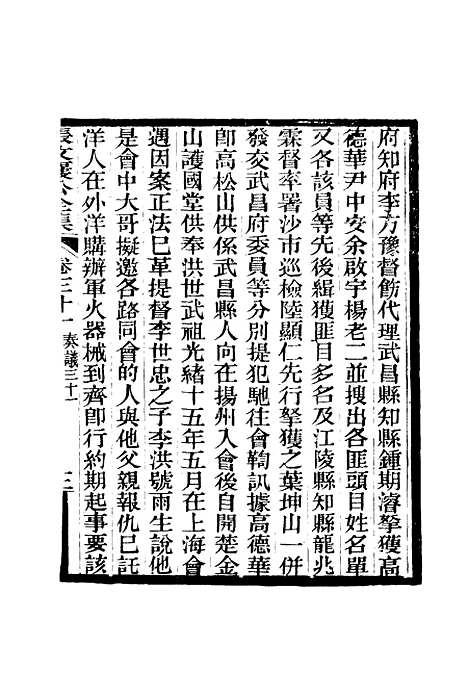 府知府李方豫督飭代理武昌縣知縣鍾期濬拏獲高
德華尹中安余啟宇楊老二並搜出各匪頭目姓名單
又各該員等先後緝獲匪目多名及江陵縣知縣龍兆
霖督率署沙市巡檢陸顯仁先行拏獲之葉坤山一併
發交武昌府委員等分別提犯馳往會鞫訊據高德華
卽高松山供係武昌縣人向在揚州入會後自開楚金
山護國堂供奉洪世武祖光緒十五年五月在上海會
遇因案正法已革提督李世忠之子李洪號雨生說他
是會中大哥擬邀各路同會的人與他父親報仇已託
洋人在外洋購辦軍火器械到齊卽行約期起事要該
張文襄公全集
卷三十一
奏議三十一
三